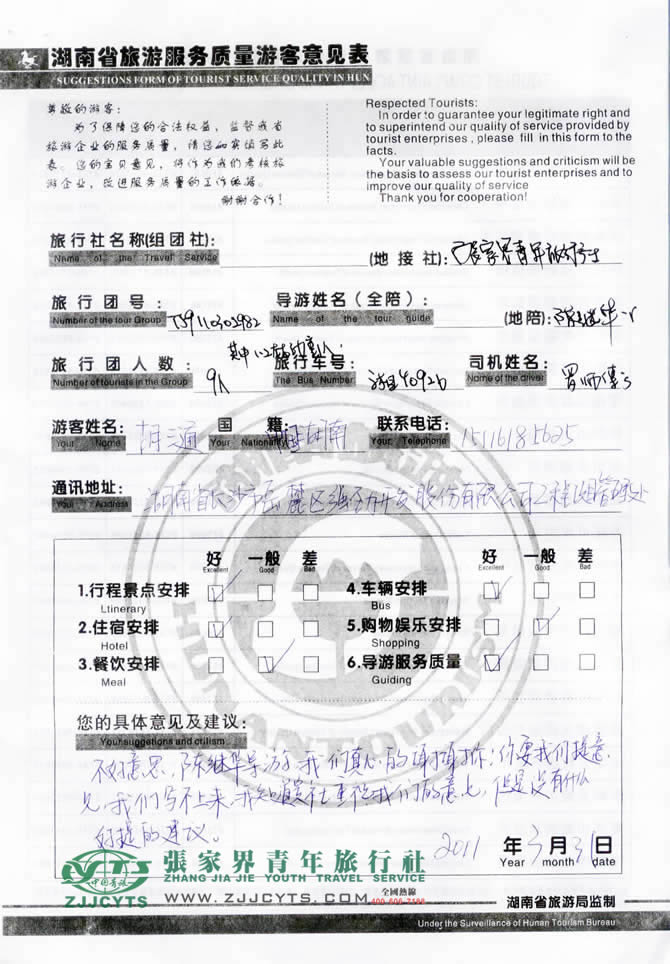 湖南省旅游服务质量游客意见表
SUGGESTIONS FORM OF TOURIST SERVICE QUALITY IN HUN
尊敬的游客:
为了保障您的合法权益,监督我省
旅游企业的服务质量,请您如实填写此
表。您的宝贝意见,将作为我们考核旅
游企业,改进服务质量的工作依据。
谢谢合作!
Respected Tourists:
In order to guarantee your legitimate right and
to superintend our quality of service provided by
tourist enterprises, please fill in this form to the
facts.
Your valuable suggestions and criticism will be
the basis to assess our tourist enterprises and to
improve our quality of service
Thank you for cooperation!
旅行社名称(组团社): (地接社): 张家界青年旅行社
Name of the Travel Service
旅行团号: 导游姓名(全陪): (地陪): 陈继华
Number of the tour Group Name of the tour guide
旅行团人数: 9人 旅行车号: 司机姓名:
Number of tourists in the Group The Bus Number Name of the driver
游客姓名: 胡通 国籍: 中国湖南 联系电话: 15116185625
Your Name Your Nationality Your Telephone
通讯地址: 湖南省长沙市岳麓区 开发股份有限公司工程
Your Address
好 一般 差 好 一般 差
Excellent Good Bad Excellent Good Bad
1.行程景点安排 4.车辆安排
Ltinerary Bus
2.住宿安排 5.购物娱乐安排
Hotel Shopping
3.餐饮安排 6.导游服务质量
Meal Guiding
HUNAN TOURISM
您的具体意见及建议:
Your suggestions and critism
不好意思,陈继华导游,我们真心的 你要我们提意
见,我们写不上来, 我们的意见,但是没有什么
好提的建议。
2011 年 3 月 31 日
Year month date
CYTS
中国青旅
ZJJCYTS
張家界青年旅行社
ZHANG JIA JIE YOUTH TRAVEL SERVICE
WWW.ZJJCYTS.COM 全國熱線
400-606-7188
湖南省旅游局监制
Under the Surveillance of Hunan Tourism Bureau